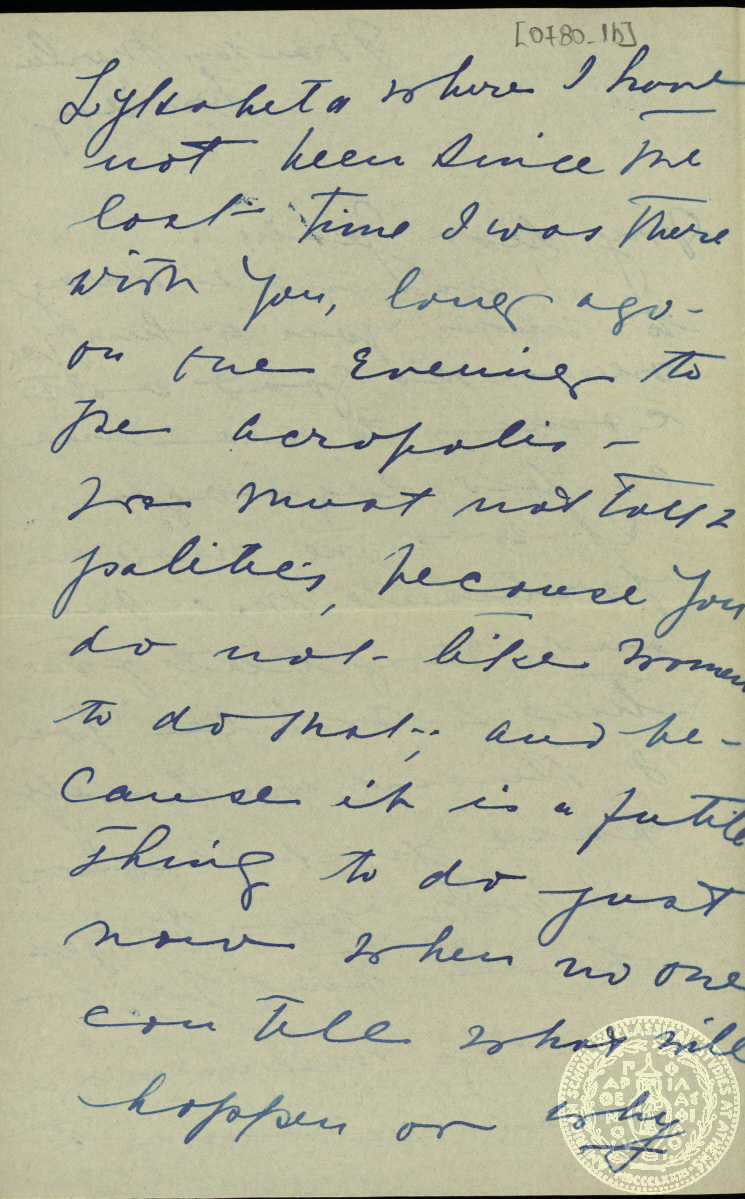 [0780_1b]
Lykabeta where I have
not been since the
last time I was there
with you, long ago -
on the Evening to
the acropolis -
We must not talk
politics, because you
do not - like women
to do that; and be-
cause it is a futile
thing to do just
now when no one
can tell what will
happen or why